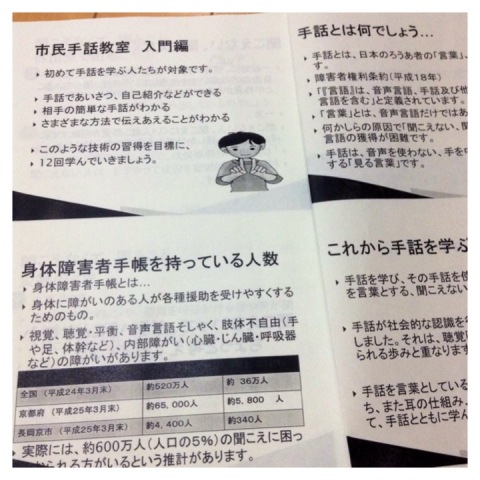 市民手話教室 入門編
初めて手話を学ぶ人たちが対象です。
手話であいさつ、自己紹介などができる
相手の簡単な手話がわかる
さまざまな方法で伝えあえることがわかる
このような技術の習得を目標に、
12回学んでいきましょう。
手話とは何でしょう…
手話とは、日本のろうあ者の「言葉」、
障害者権利条約(平成18年)
「『言語』は、音声言語、手話及び他
言語を含む」と定義されています。
「言葉」とは、音声言語だけではあ
何かしらの原因で「聞こえない、聞
言語の獲得が困難です。
手話は、音声を使わない、手を中
する「見る言葉」です。
身体障害者手帳を持っている人数
身体障害者手帳とは…
身体に障がいのある人が各種援助を受けやすくする
ためのもの。
視覚、聴覚・平衡、音声言語そしゃく、肢体不自由(手
や足、体幹など)、内部障がい(心臓・じん臓・呼吸器
など)の障がいがあります。
全国 (平成24年3月末) 約520万人 約 36万人
京都府 (平成25年3月末) 約65,000人 約5,800 人
長岡京市 (平成25年3月末) 約4,400人 約340人
実際には、約600万人(人口の5%)の聞こえに困っ
られる方がいるという推計があります。
これから手話を学ぶ
手話を学び、その手話を使
を言葉とする、聞こえない
手話が社会的な認識を
しました。それは、聴覚
られる歩みと重なります
手話を言葉としている
ち、また耳の仕組み、
て、手話とともに学ん